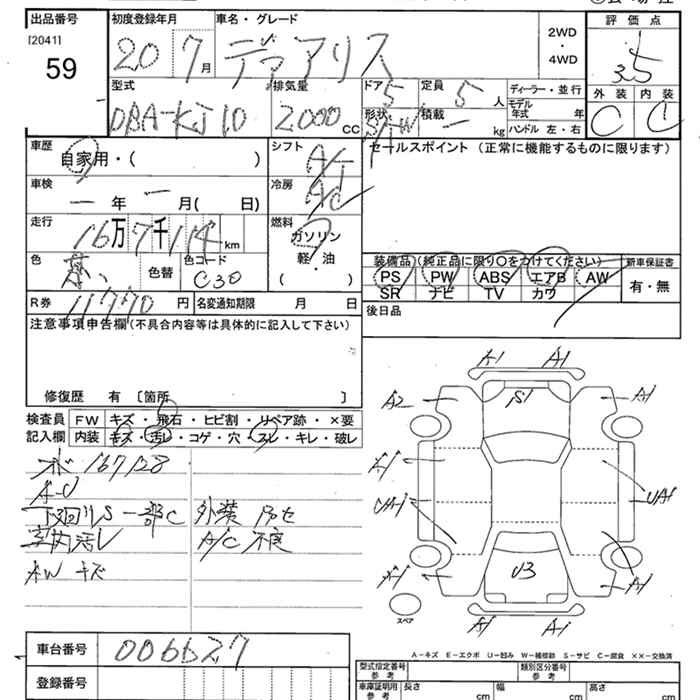 出品番号
[20411]
59
初度登録年月
20 7月
車名・グレード
デュアリス
2WD
・
4WD
評価点
3.5
外装 内装
C C
型式
DBA-KJ10
排気量
2000 CC
ドア 5
形状 S/W
定員 5人
積載 ー kg
ディーラー・並行
モデル年式 年
ハンドル 左・右
車歴
自家用・( )
シフト
A/T
セールスポイント (正常に機能するものに限ります)
車検
ー年 ー月( 日)
冷房
A/C
走行
16万7千114km
燃料
ガソリン
軽・油
( )
色
色替
色コード
C30
装備品(純正品に限り○をつけてください)
PS PW ABS エアB AW
SR ナビ TV カワ
新車保証書
有・無
R券 11770円
名変通知期限 月 日
後日品
注意事項申告欄(不具合内容等は具体的に記入して下さい)
修復歴 有 〔箇所 〕
検査員
記入欄
FW キズ・飛石・ヒビ割・リペア跡・×要
内装 キズ・汚レ・コゲ・穴・スレ・キレ・破レ
メ 167128
A-U
下廻りS一部C 外装 Pセ
室内汚レ A/C不良
AW キズ
A1 A1
A2 S1 A1
A1
UA1 UA1
A1 U3 A1
A1 A1
スペア
A-キズ E-エクボ U-凹み W-補修跡 S-サビ C-腐食 ××-交換済
車台番号 006627
登録番号
型式指定番号 参考
類別区分番号 参考
車庫証明用 参考
長さ cm 幅 cm 高さ cm